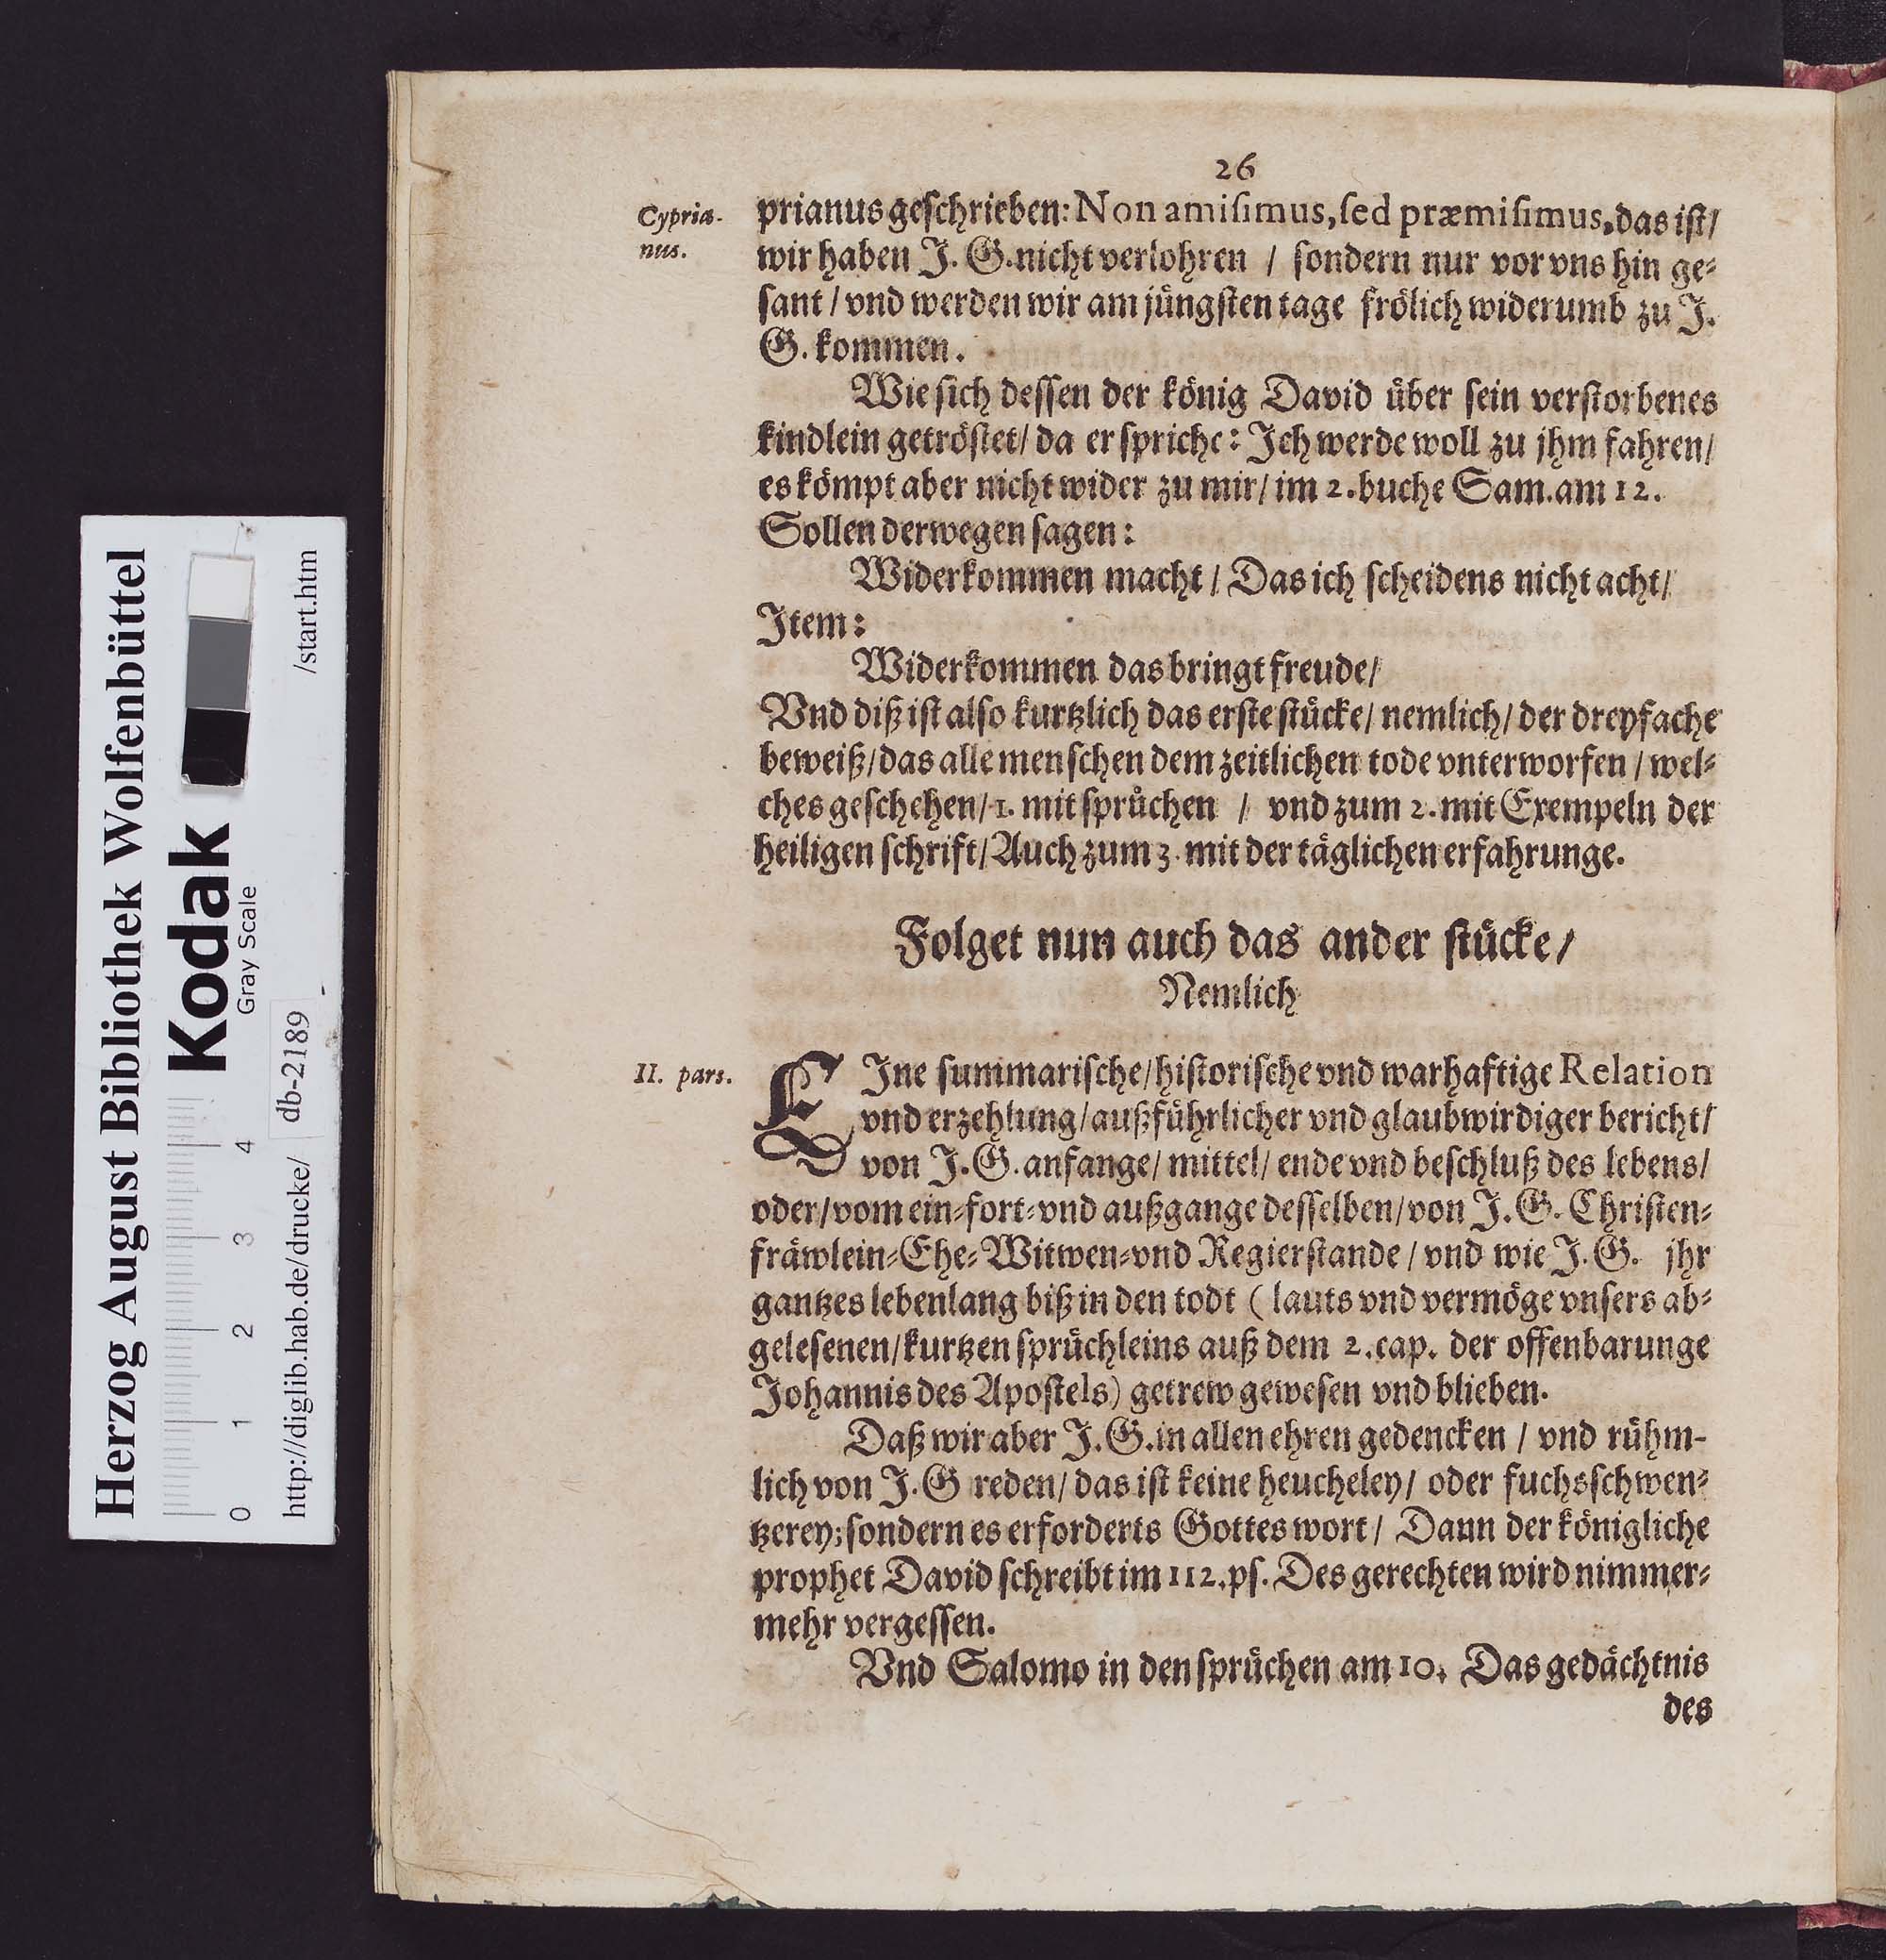 26
Cypria-
nus.
prianus geschrieben: Non amisimus, sed præmisimus, das ist/
wir haben J. G. nicht verlohren / sondern nur vor vns hin ge-
sant / vnd werden wir am jüngsten tage frölich widerumb zu J.
G. kommen.
Wie sich dessen der könig David über sein verstorbenes
kindlein getröstet/ da er spricht: Jch werde woll zu jhm fahren/
es kömpt aber nicht wider zu mir/ im 2. buche Sam. am 12.
Sollen derwegen sagen:
Widerkommen macht / Das ich scheidens nicht acht/
Jtem:
Widerkommen das bringt freude/
Vnd diß ist also kurtzlich das erste stücke/ nemlich/ der dreyfache
beweiß/ das alle menschen dem zeitlichen tode vnterworfen / wel-
ches geschehen/ 1. mit sprüchen / vnd zum 2. mit Exempeln der
heiligen schrift/ Auch zum 3. mit der täglichen erfahrunge.
Folget nun auch das ander stücke/
Nemlich
II. pars.
EJne summarische/ historische vnd warhaftige Relation
vnd erzehlung/ außführlicher vnd glaubwirdiger bericht/
von J. G. anfange/ mittel/ ende vnd beschluß des lebens/
oder/ vom ein-fort-vnd außgange desselben/ von J. G. Christen-
fräwlein-Ehe-Witwen-vnd Regierstande / vnd wie J. G. jhr
gantzes lebenlang biß in den todt ( lauts vnd vermöge vnsers ab-
gelesenen/ kurtzen sprüchleins auß dem 2. cap. der offenbarunge
Johannis des Apostels) getrew gewesen vnd blieben.
Daß wir aber J. G. in allen ehren gedencken / vnd rühm-
lich von J. G reden/ das ist keine heucheley/ oder fuchsschwen-
tzerey; sondern es erforderts Gottes wort/ Dann der königliche
prophet David schreibt im 112. ps. Des gerechten wird nimmer-
mehr vergessen.
Vnd Salomo in den sprüchen am 10. Das gedächtnis
des
Herzog August Bibliothek Wolfenbüttel
Kodak
Gray Scale
0 1 2 3 4
http://diglib.hab.de/drucke/ db-2189 /start.htm